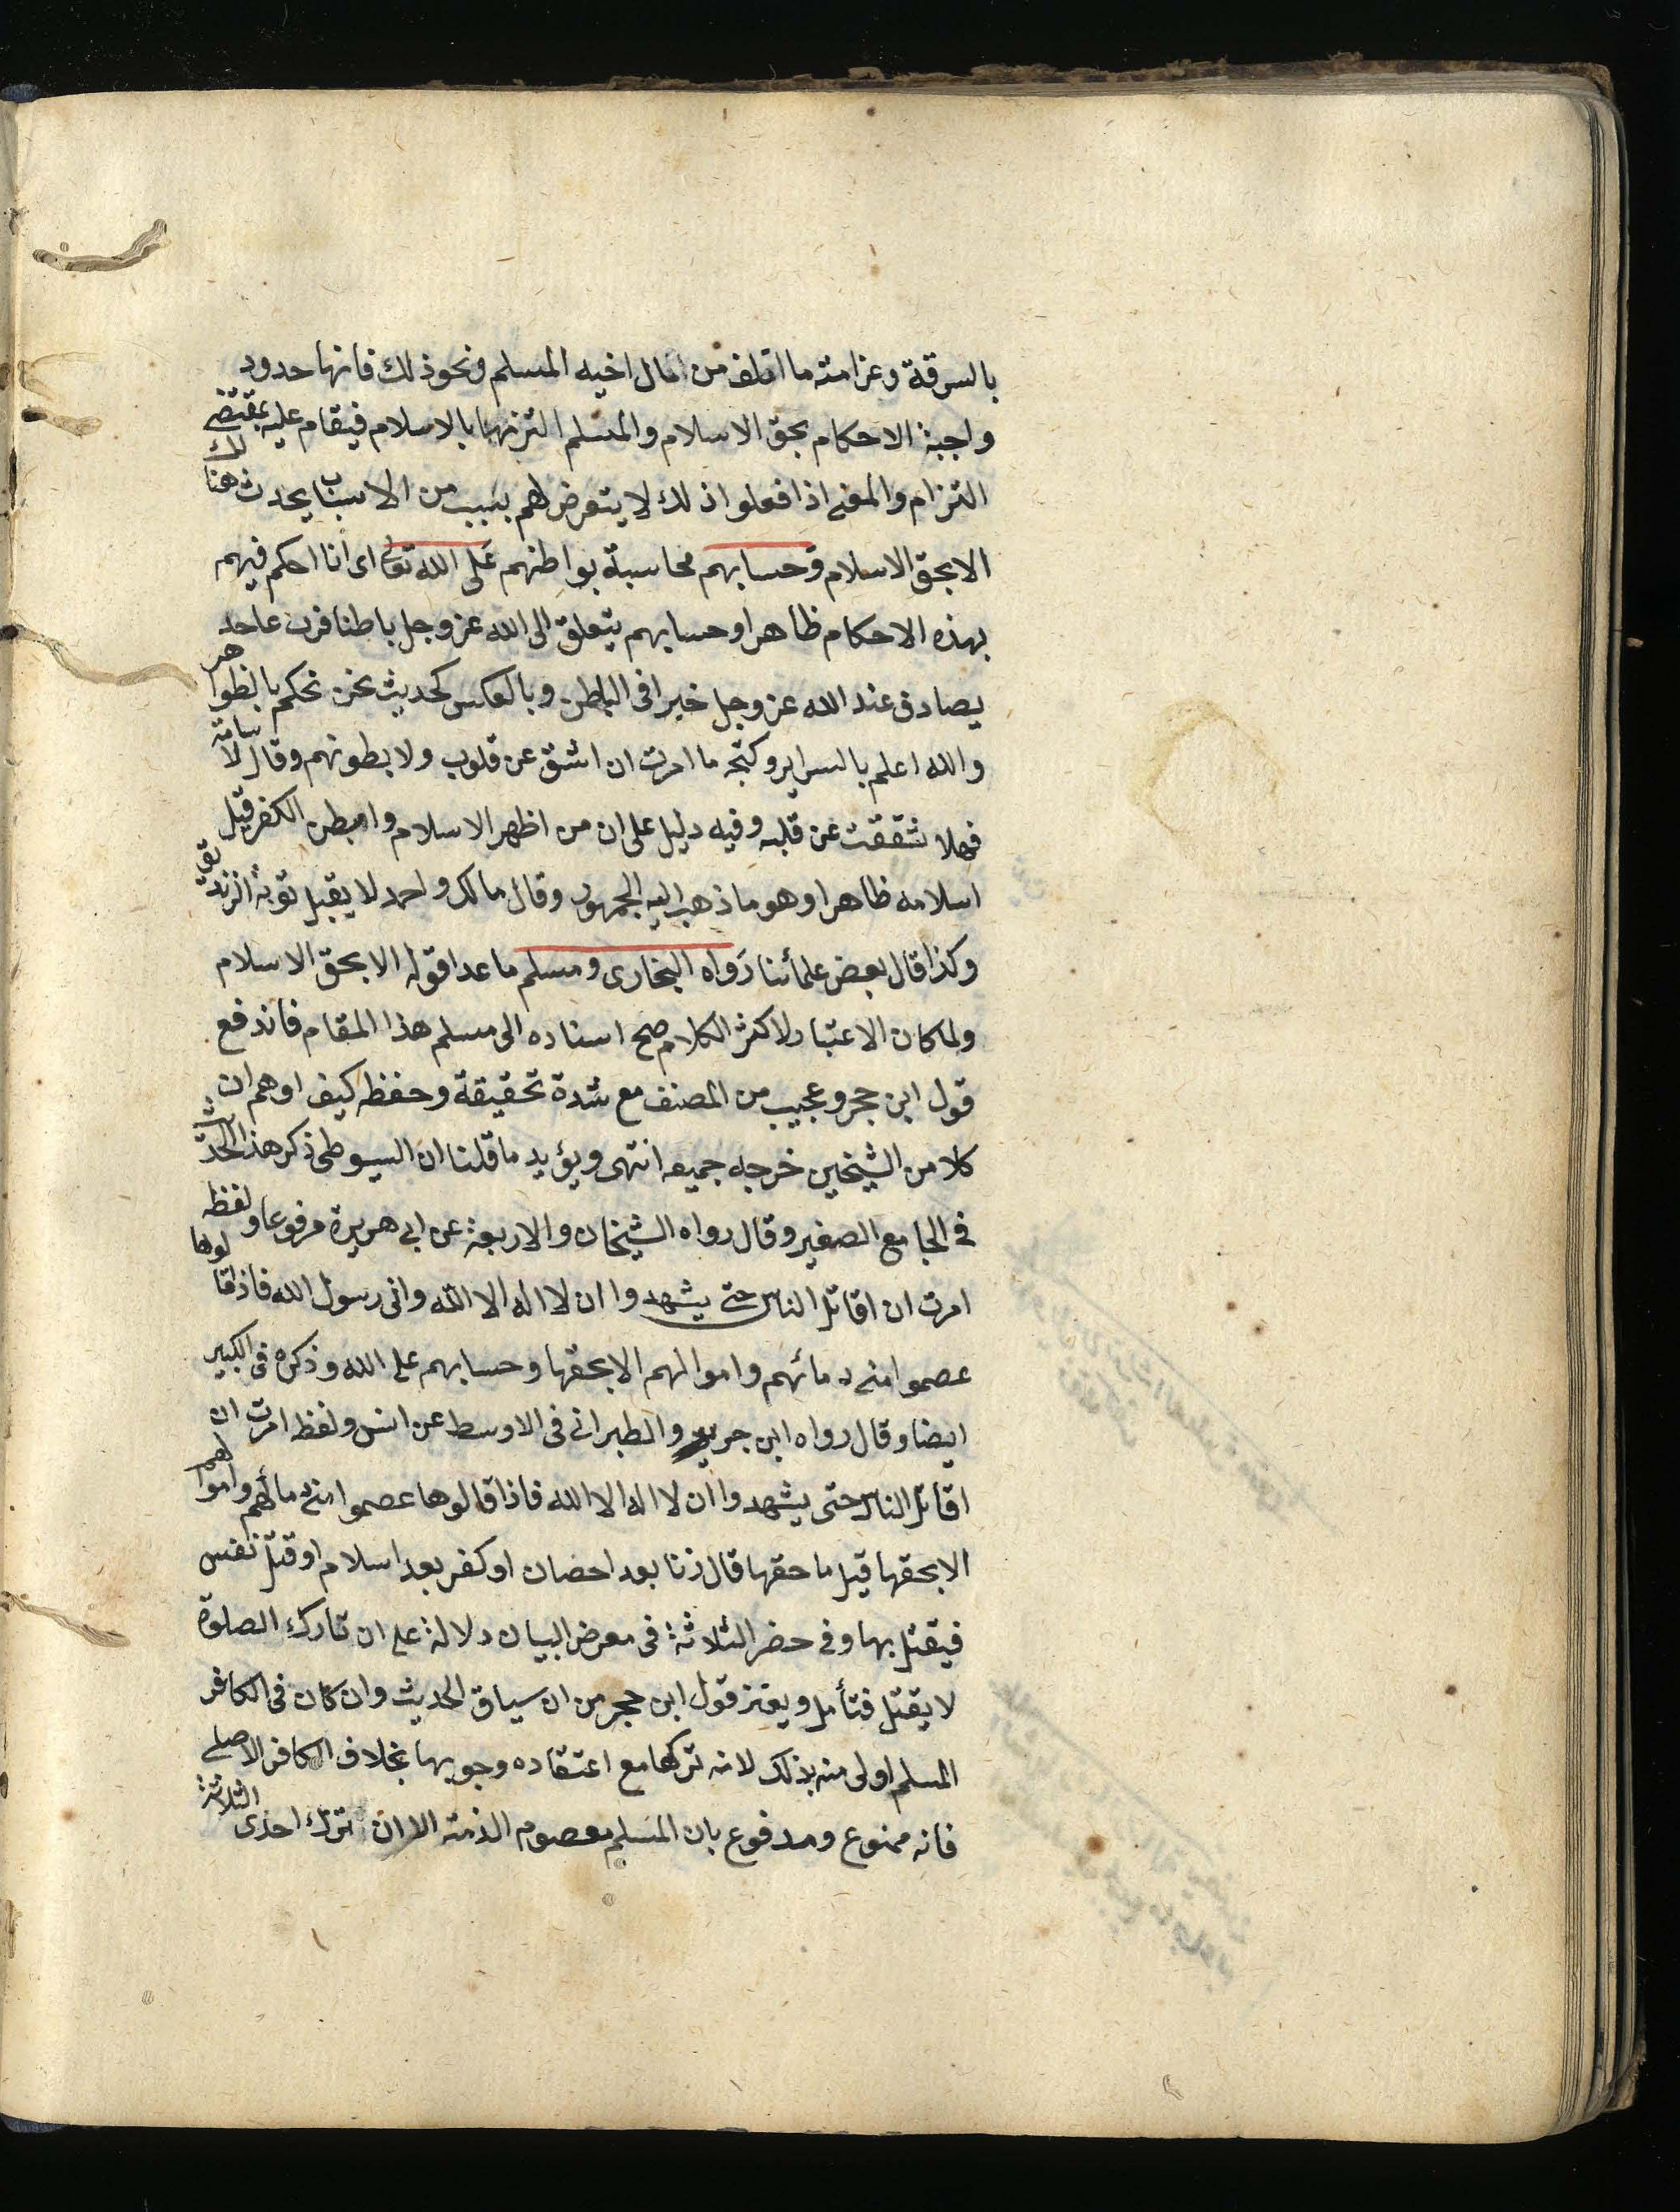 بالسرقة وغرامته ما اتلف من مال اخيه المسلم ونحو ذلك فانها حدود
واجبة الاحكام بحق الاسلام والمسلم التزمها بالاسلام فيقام عليه بمقتضى
التزام والمعنى اذا فعلوا ذلك لا يتعرض لهم بسبب من الاسباب يحدث هنا لك
الا بحق الاسلام وحسابهم محاسبة بواطنهم على الله تعالى اى انا احكم فيهم
بهذه الاحكام ظاهرا وحسابهم يتعلق الى الله عز وجل باطنا فرب عاحد
يصادف عند الله عز وجل خيرا فى الباطن وبالعكس كحديث نحن نحكم بالظواهر
والله اعلم بالسراير وكتجه ما امرت ان اشق عن قلوب ولا بطونهم وقال لاسامة
فهلا شققت عن قلبه وفيه دليل على ان من اظهر الاسلام وابطن الكفر قبل
اسلامه ظاهرا وهو ما ذهب اليه الجمهور وقال مالك واحمد لا يقبل توبة الزنديق
وكذا قال بعض علمائنا رواه البخارى ومسلم ما عدا قوله الا بحق الاسلام
ولما كان الاعتبار لاكثر الكلام صح اسناده الى مسلم هذا المقام فاندفع
قول ابن حجر وعجيب من المصنف مع شدة تحقيقة وحفظه كيف اوهم ان
كلا من الشيخين خرجه جميعه انتهى ويؤيد ما قلنا ان السيوطى ذكر هذا الحديث
فى الجامع الصغير وقال رواه الشيخان والاربعة عن ابى هريرة مرفوعا ولفظه
امرت ان اقاتل الناس حتى يشهدوا ان لا اله الا الله وانى رسول الله فاذا قالوها
عصموا منى دمائهم واموالهم الا بحقها وحسابهم على الله وذكره فى الكبير
ايضا وقال رواه ابن جرير والطبرانى فى الاوسط عن انس ولفظه امرت ان
اقاتل الناس حتى يشهدوا ان لا اله الا الله فاذا قالوها عصموا منى دمائهم واموالهم
الا بحقها قيل ما حقها قال زنا بعد احصان او كفر بعد اسلام او قتل نفس
فيقتل بها وفى حضر الثلاثة فى معرض البيان دلالة على ان تارك الصلوة
لا يقتل فتأمل ويعتز قول ابن حجر من ان سياق الحديث وان كان فى الكافر
المسلم اولى منه بذلك لانه تركها مع اعتقاده وجوبها بخلاف الكافر الاصلى
فانه ممنوع ومدفوع بان المسلم معصوم الذمة الا ان ترك احدى الثلاثة